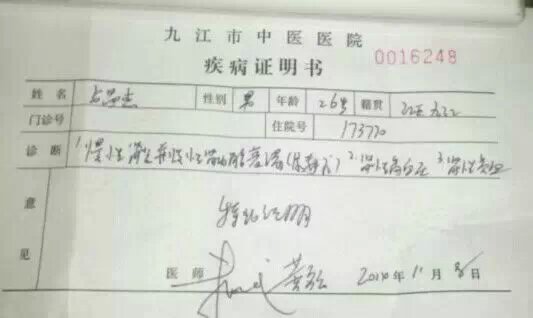 九江市中医医院
0016248
疾病证明书
姓名 性别 男 年龄 26岁 籍贯 江西九江
门诊号 住院号 173770
诊断 1.慢性肾炎并慢性肾功能衰竭 2.肾性高血压 3.肾性贫血
意见 特此证明
医师 2010年11月 日